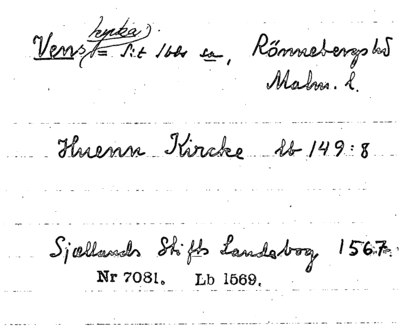 kyrka
Vens = S:t Ibbs sn, Rönnebergs hd
Malm. l.
Huenn Kircke bb 149:8
Sjællands Stifts Landebog 1567.
Nr 7081. Lb 1569.